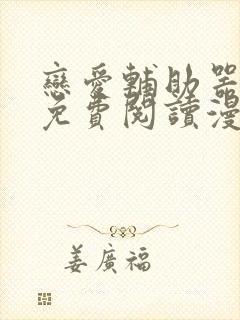 戀愛輔助器
免費閱讀漫
姜廣福